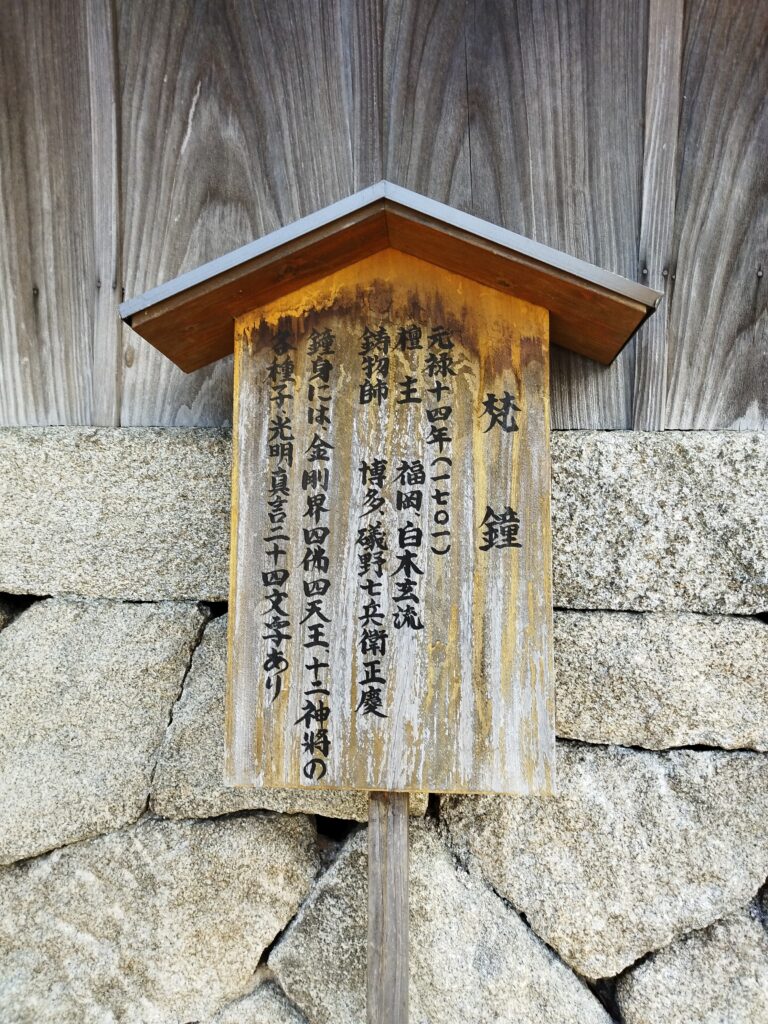 梵鐘
元禄十四年(一七〇一)
檀主 福岡、白木玄流
鋳物師 博多、礒野七兵衛正慶
鐘身には、金剛界四佛四天王、十二神将の
各種子、光明真言二十四文字あり